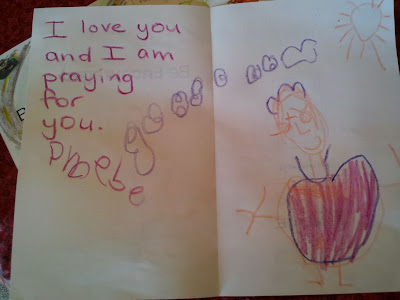 I love you
and I am
praying
for
you.
Phoebe